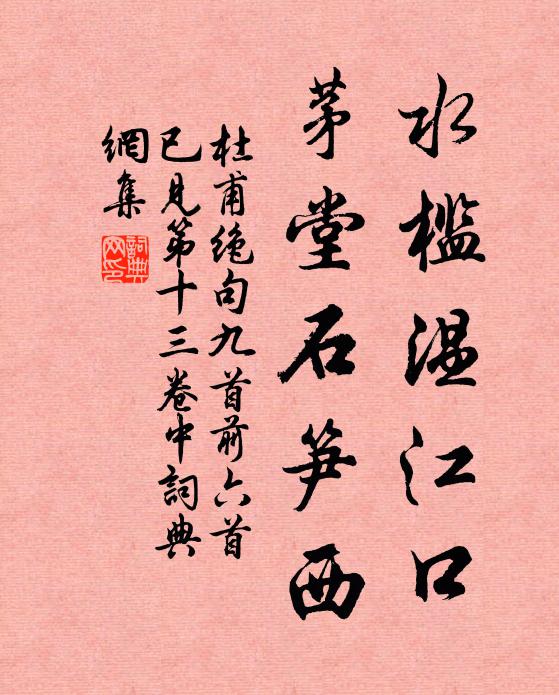 水檻温江口
茅堂石笋西
杜甫絶句九首前六首
已見第十三卷中詞典
網集
詞典
网印